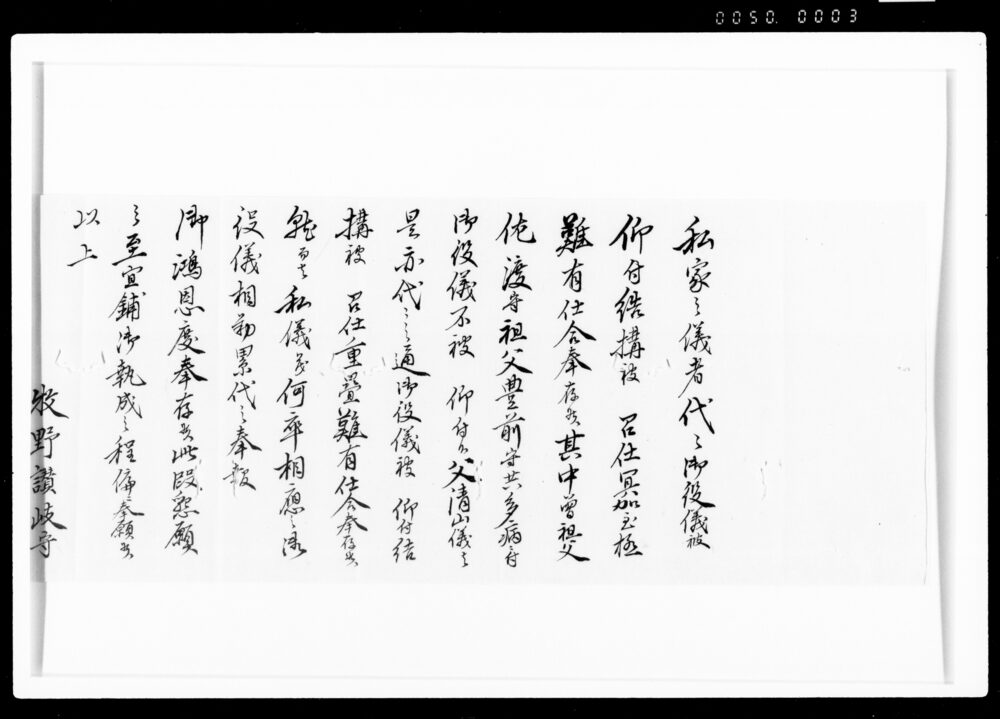 0050. 0003
私家之儀者代々御役儀被
仰付結構被　召仕冥加至極
難有仕合奉存候其中曽祖父
佐渡守祖父豊前守共多病付
御役儀不被　仰付候父清山儀者
是亦代々之通御役儀被　仰付結
構被　召仕重畳難有仕合奉存候
就而者私儀茂何卒相應之御
役儀相勤累代之奉報
御鴻恩度奉存候此段懇願
之至宜鋪御執成之程偏奉願候
以上
牧野讃岐守